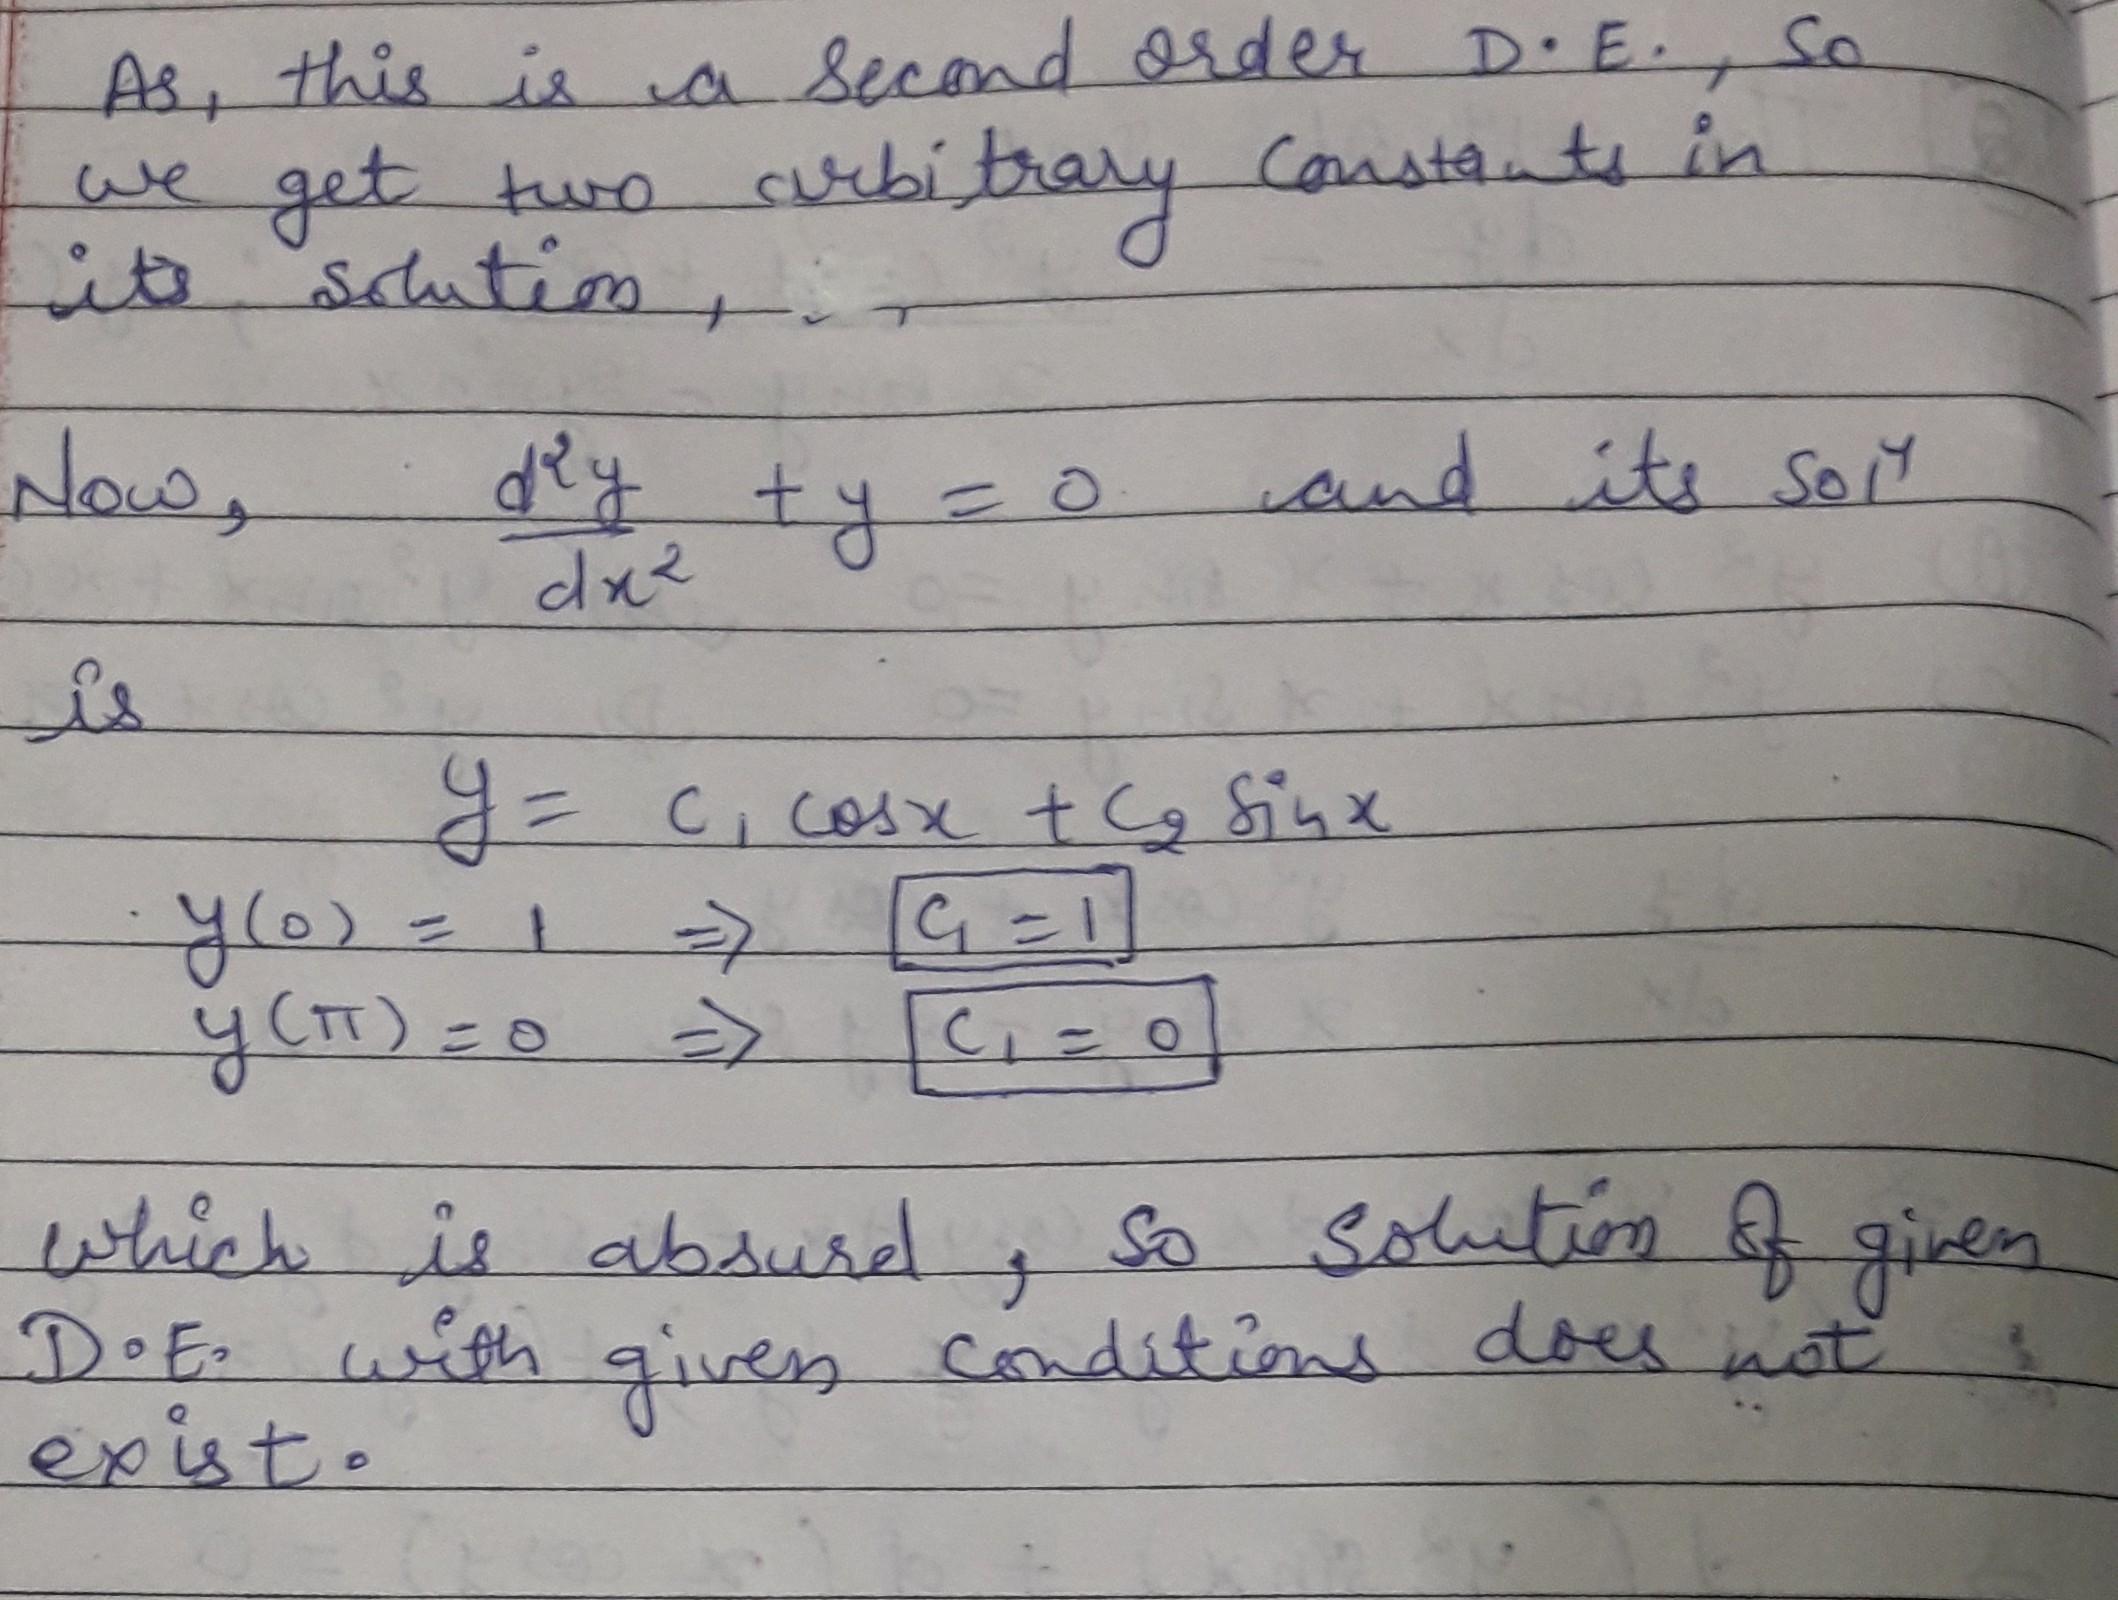 As, this is a second order D.E., so
we get two arbitrary constants in
its solution,
Now, d²y/dx² + y = 0 and its solⁿ
is
y = c₁ cosx + c₂ sinx
y(0) = 1 ⇒ c₁ = 1
y(π) = 0 ⇒ c₁ = 0
which is absurd, so solution of given
D.E. with given conditions does not
exist.